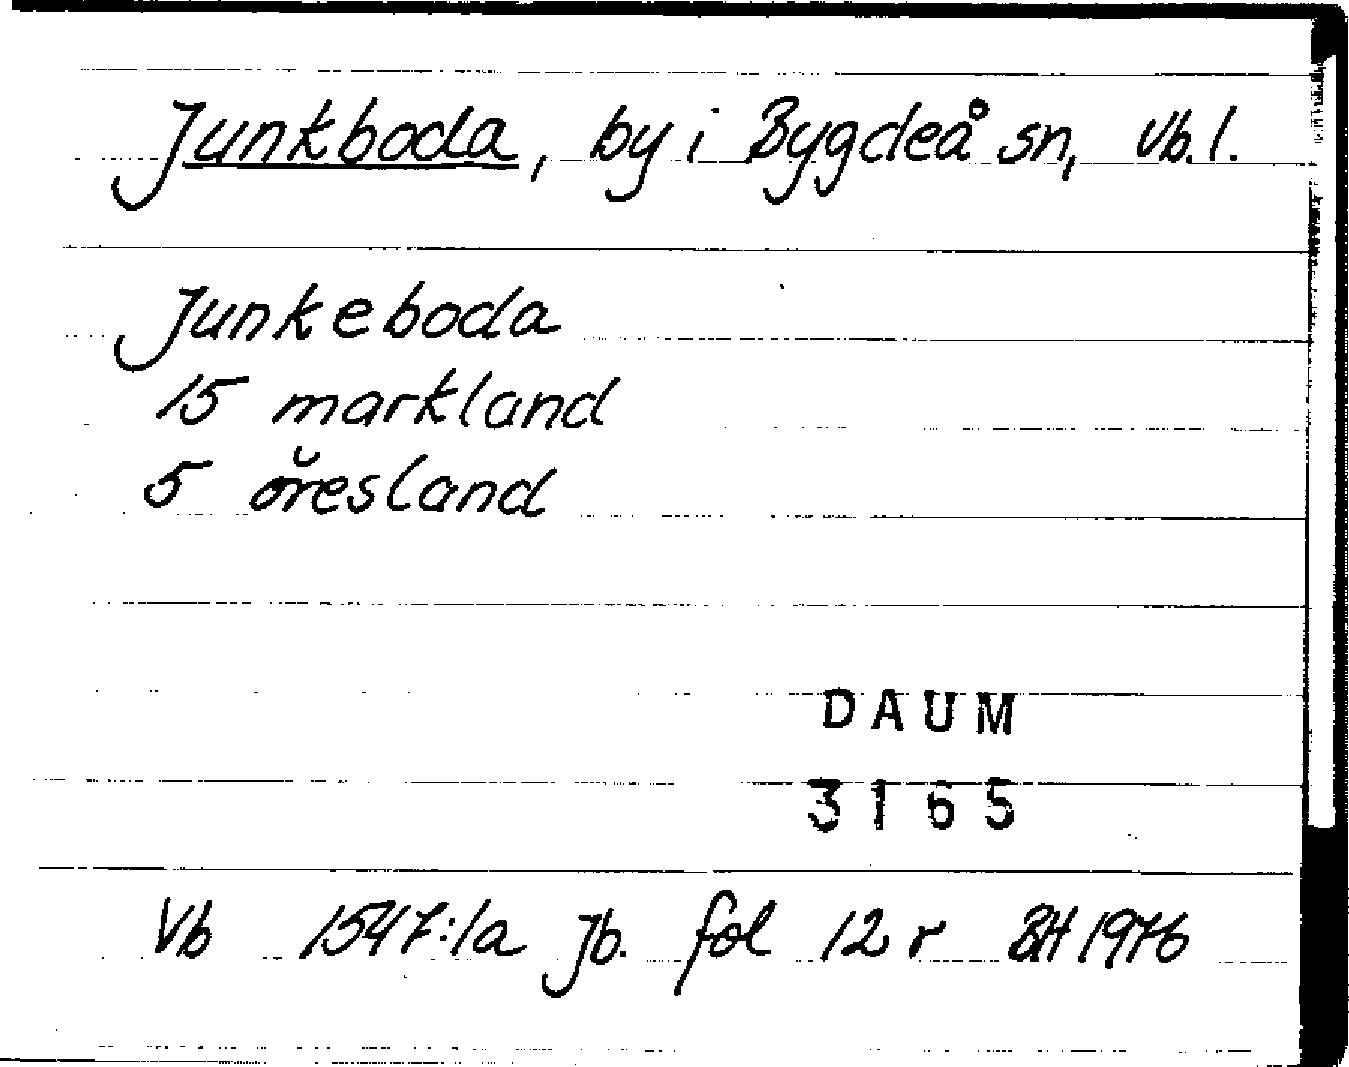 Junkboda, by i Bygdeå sn, Vb. l.
Junkeboda
15 markland
5 öresland
DAUM
3165
Vb 1547:1a Jb. fol 12 r BH 1976